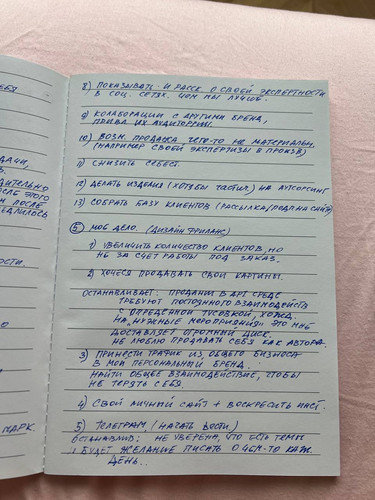 ЕБЯ
ДАЧИ,
ДИТЕЛЬНО
ОСЛЕ ЭТОГО
М ПОСЛЕ
ЕДИЛОСЬ
ОСТИ.
МАРК.
8) ПОКАЗЫВАТЬ И РАССК. О СВОЕЙ ЭКСПЕРТНОСТИ
В СОЦ. СЕТЯХ. ЧЕМ МЫ ЛУЧШЕ.
9) КОЛАБОРАЦИИ С ДРУГИМИ БРЕНД,
ИХ АУДИТОРИИ.
10) ВОЗМ. ПРОДАЖА ЧЕГО-ТО НЕ МАТЕРИАЛЬН.
(НАПРИМЕР СВОЕЙ ЭКСПЕРТИЗЫ В ПРОИЗВ)
11) СНИЗИТЬ СЕБЕСТ.
12) ДЕЛАТЬ ИЗДЕЛИЯ (ХОТЯБЫ ЧАСТИЧ.) НА АУТСОРСИНГ
13) СОБРАТЬ БАЗУ КЛИЕНТОВ (РАССЫЛКА/ПОДП НА САЙТ)
5) МОЕ ДЕЛО. (ДИЗАЙН ФРИЛАНС)
1) УВЕЛИЧИТЬ КОЛИЧЕСТВО КЛИЕНТОВ, НО
НЕ ЗА СЧЕТ РАБОТЫ ПОД ЗАКАЗ.
2) ХОЧЕСЯ ПРОДАВАТЬ СВОИ КАРТИНЫ.
ОСТАНАВЛИВАЕТ: ПРОДАЖИ В АРТ СРЕДЕ
ТРЕБУЮТ ПОСТОЯННОГО ВЗАИМОДЕЙСТВ
С ОПРЕДЕЛЕННОЙ ТУСОВКОЙ, ХОЖД.
НА „НУЖНЫЕ МЕРОПРИЯТИЯ" ЭТО МНЕ
ДОСТАВЛЯЕТ ОГРОМНЫЙ ДИСК.
НЕ ЛЮБЛЮ ПРОДАВАТЬ СЕБЯ КАК АВТОРА.
3) ПРИНЕСТИ ТРАФИК ИЗ ОБЩЕГО БИЗНЕСА
В МОЙ ПЕРСОНАЛЬНЫЙ БРЕНД.
НАЙТИ ОБЩЕЕ ВЗАИМОДЕЙСТВИЕ, ЧТОБЫ
НЕ ТЕРЯТЬ СЕБЯ.
4) СВОЙ ЛИЧНЫЙ САЙТ + ВОСКРЕСИТЬ ИНСТ.
5) ТЕЛЕГРАМ (НАЧАТЬ ВЕСТИ)
ОСТАНАВЛИВ: НЕ УВЕРЕНА, ЧТО ЕСТЬ ТЕМЫ
И БУДЕТ ЖЕЛАНИЕ ПИСАТЬ О ЧЕМ-ТО КАЖ.
ДЕНЬ..